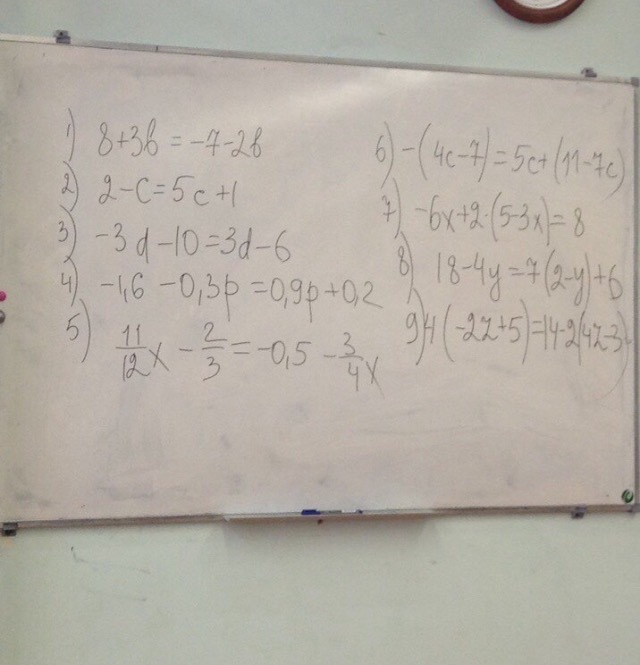 1) 8+3b = -7-2b
2) 2-c=5c+1
3) -3d-10=3d-6
4) -1,6-0,3p=0,9p+0,2
5) 11/12x - 2/3 = -0,5 - 3/4x
6) -(4c-7)=5c+(11-7c)
7) -6x+2·(5-3x)=8
8) 18-4y=7(2-y)+6
9) 4(-2z+5)=14-2(4z-3)